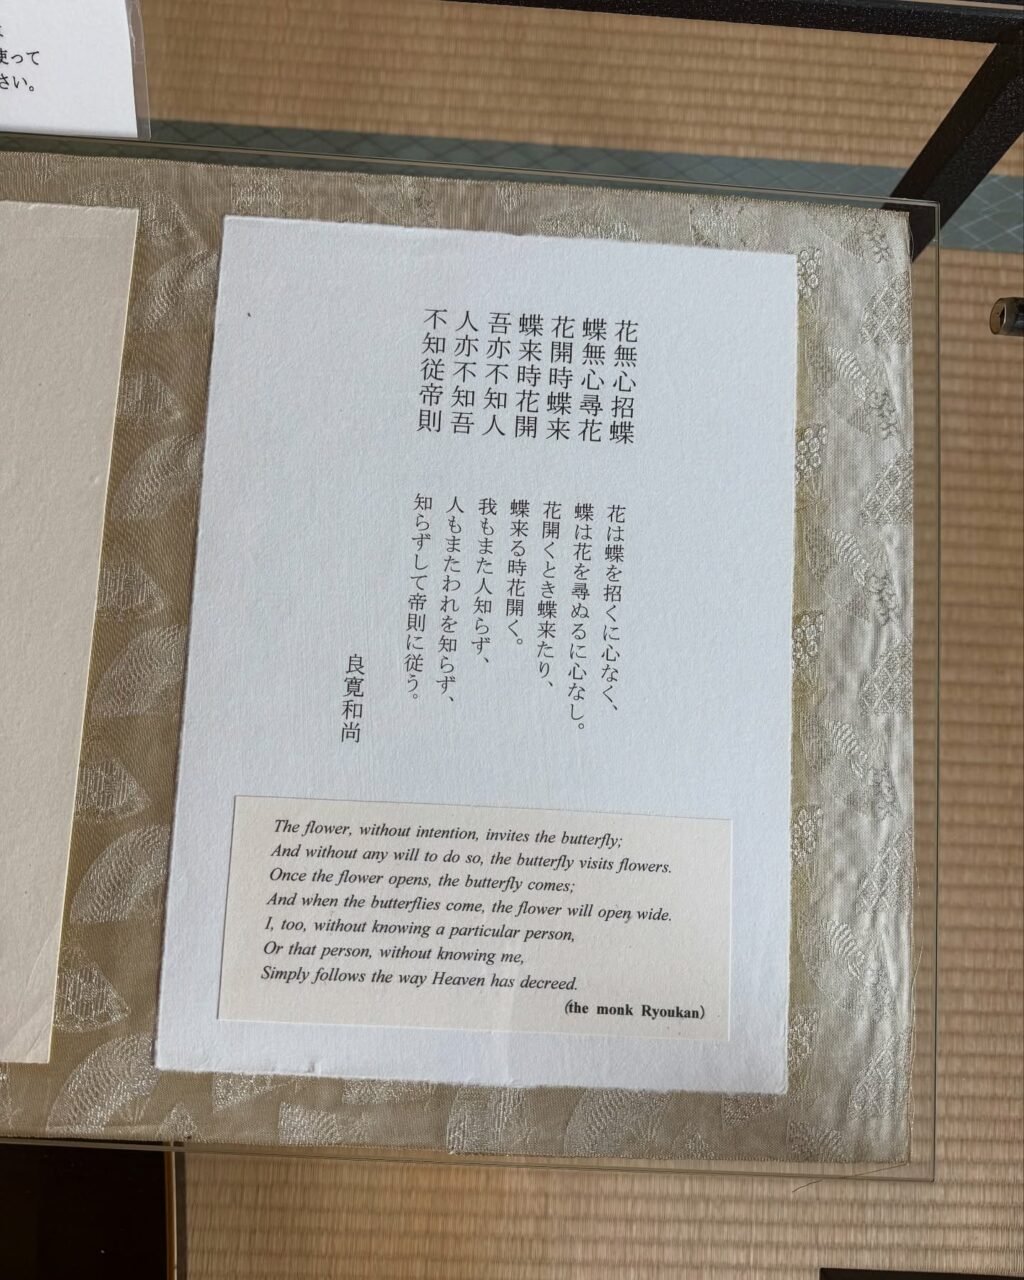 使って
さい。
花無心招蝶
蝶無心尋花
花開時蝶来
蝶来時花開
吾亦不知人
人亦不知吾
不知従帝則
花は蝶を招くに心なく、
蝶は花を尋ぬるに心なし。
花開くとき蝶来たり、
蝶来る時花開く。
我もまた人知らず、
人もまたわれを知らず、
知らずして帝則に従う。
良寛和尚
The flower, without intention, invites the butterfly;
And without any will to do so, the butterfly visits flowers.
Once the flower opens, the butterfly comes;
And when the butterflies come, the flower will open wide.
I, too, without knowing a particular person,
Or that person, without knowing me,
Simply follows the way Heaven has decreed.
(the monk Ryoukan)